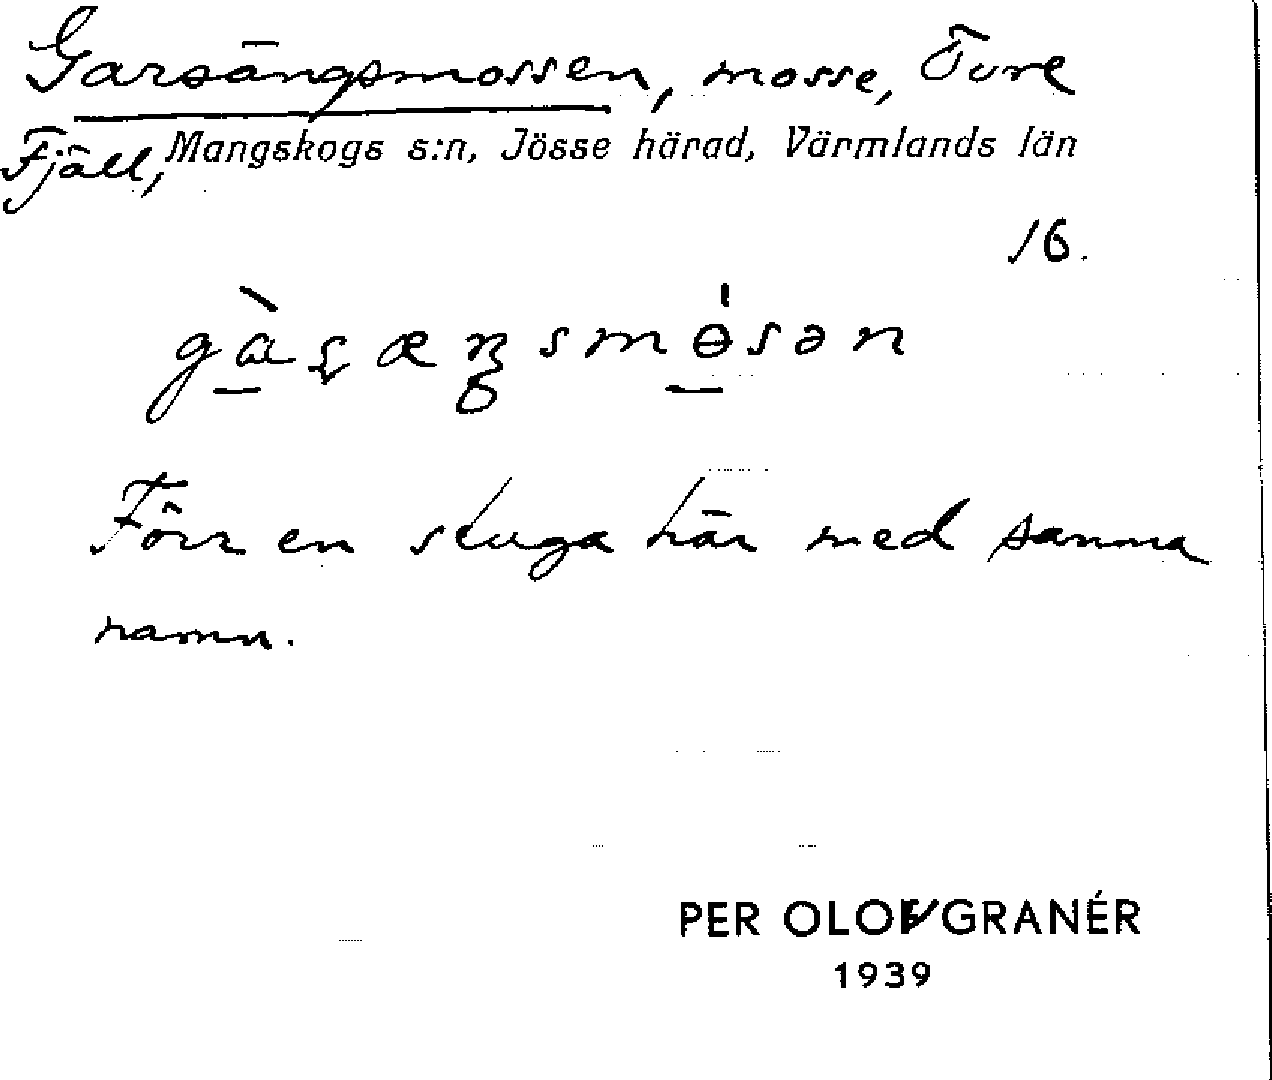 Garsängsmossen, mosse, Övre
Fjäll, Mangskogs s:n, Jösse härad, Värmlands län
16.
Förr en stuga här med samma
namn.
PER OLOF GRANÉR
1939